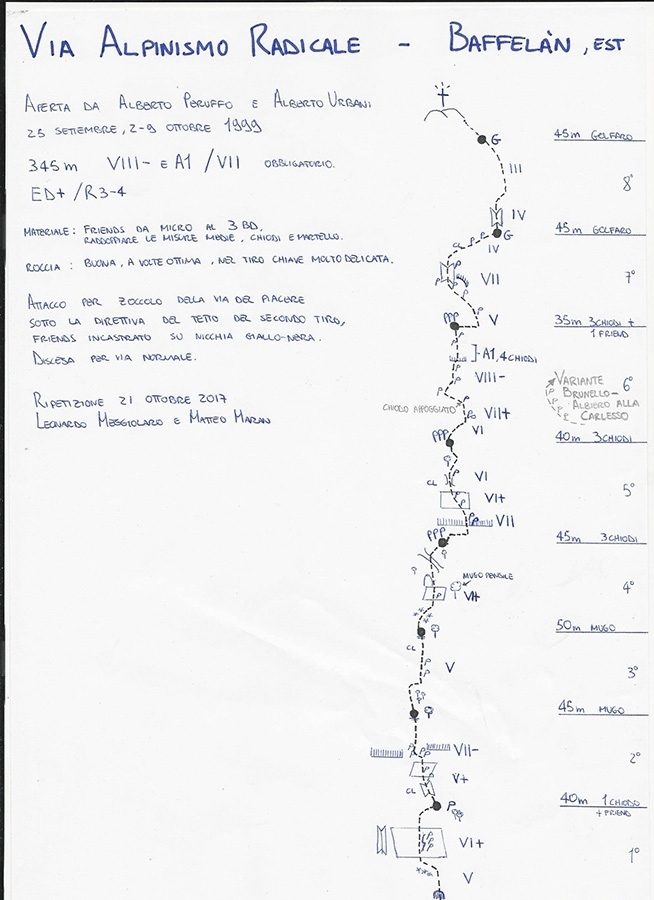 VIA ALPINISMO RADICALE - BAFFELÀN, EST
APERTA DA ALBERTO PERUFFO E ALBERTO URBANI
25 SETTEMBRE, 2-9 OTTOBRE 1999
345 m VIII- E A1 / VII OBBLIGATORIO.
ED+ / R3-4
MATERIALE: FRIENDS DA MICRO AL 3 BD,
RADDOPPIARE LE MISURE MEDIE, CHIODI E MARTELLO.
ROCCIA: BUONA, A VOLTE OTTIMA, NEL TIRO CHIAVE MOLTO DELICATA.
ATTACCO PER ZOCCOLO DELLA VIA DEL PIACERE
SOTTO LA DIRETTIVA DEL TETTO DEL SECONDO TIRO,
FRIENDS INCASTRATO SU NICCHIA GIALLO-NERA.
DISCESA PER VIA NORMALE.
RIPETIZIONE 21 OTTOBRE 2017
LEONARDO MEGGIOLARO E MATTEO MARAN
G
45m GOLFARO
III
8°
IV
G
45m GOLFARO
CL P P
IV
VII
7°
V
PPP
35m 3 CHIODI +
1 FRIEND
]-A1, 4 CHIODI
VIII-
6°
VARIANTE
BRUNELLO-
ALBIERO ALLA
CARLESSO
CHIODO APPOGGIATO
VII+
VI
PPP
40m 3 CHIODI
VI
CL
VI+
5°
VII
PPP
45m 3 CHIODI
MUGO PENSILE
4°
VI+
50m MUGO
CL
V
3°
45m MUGO
VII-
2°
V+
CL
P
40m 1 CHIODO
+ FRIEND
VI+
1°
V